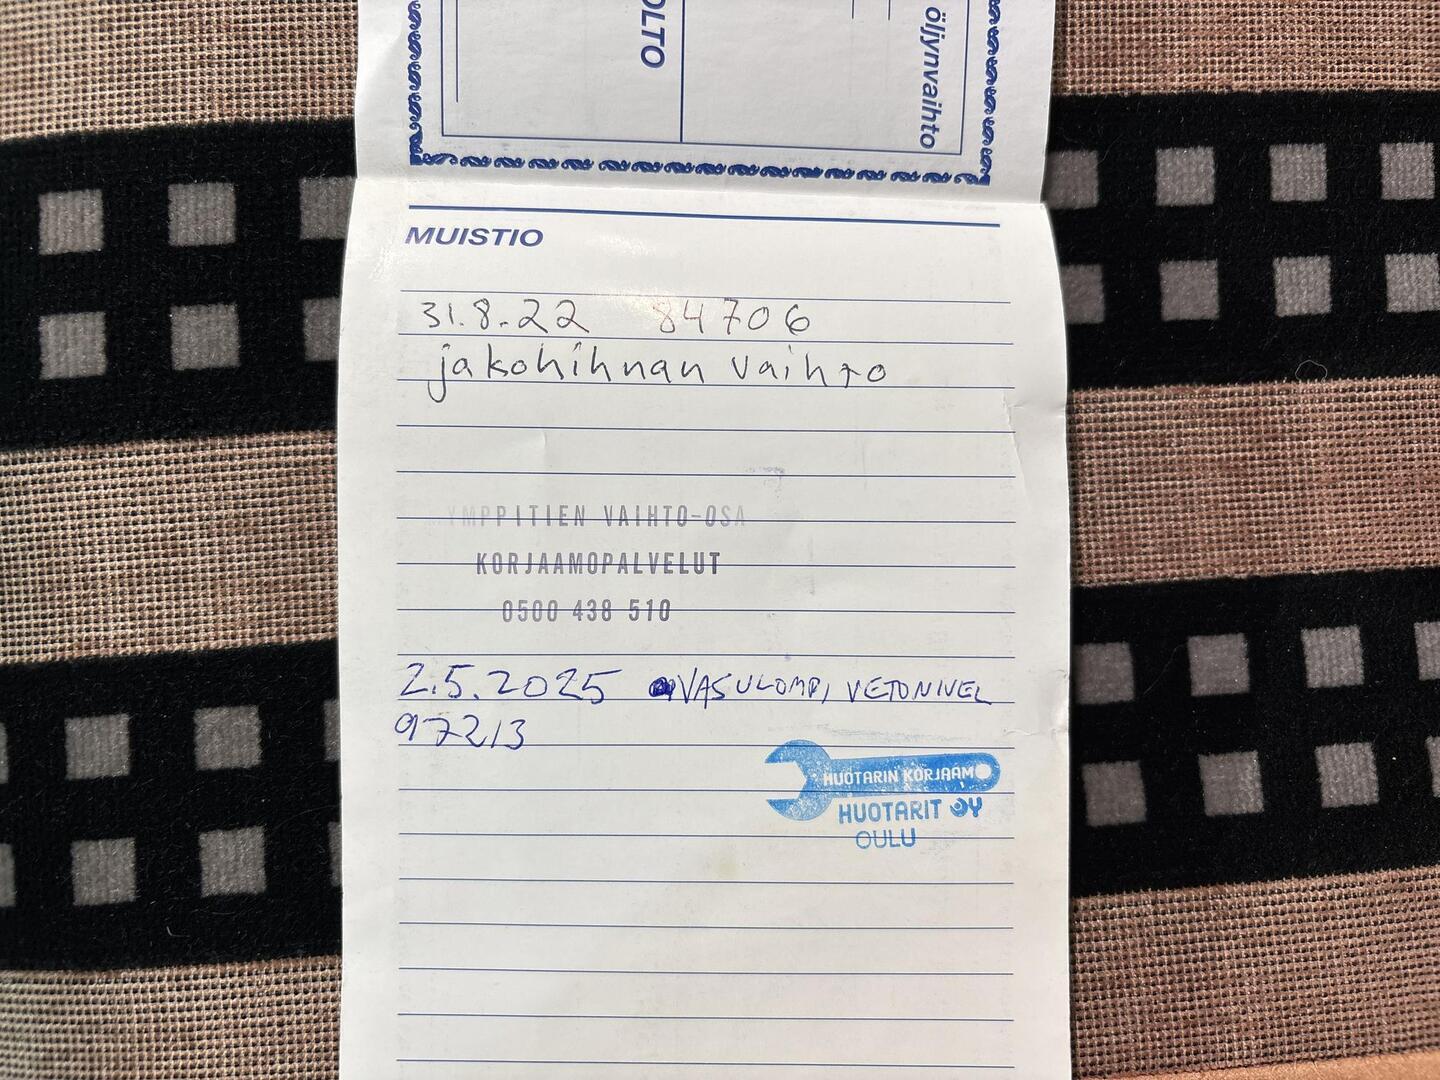 OLTO
öljynvaihto
MUISTIO
31.8.22 84706
jakohihnan vaihto
YMPPITIEN VAIHTO-OSA
KORJAAMOPALVELUT
0500 438 510
2.5.2025 VASULOMP, VETONIVEL
97213
HUOTARIN KORJAAMO
HUOTARIT OY
OULU